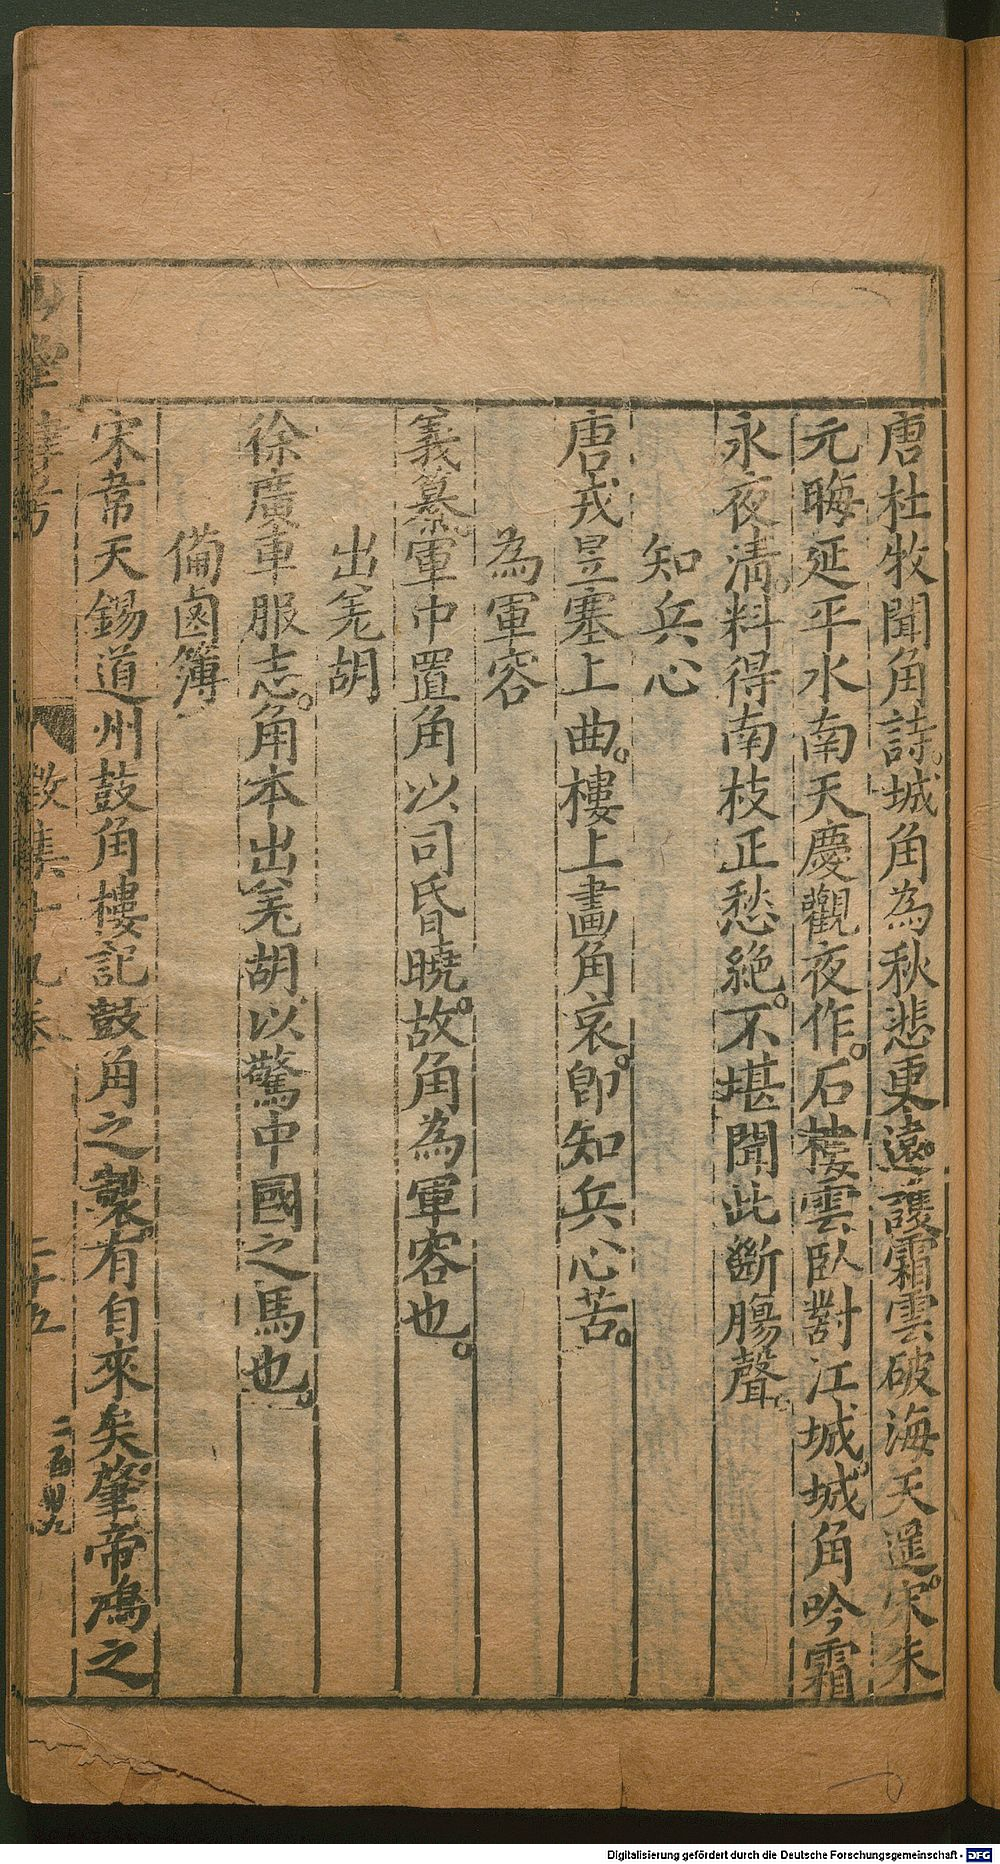 唐杜牧聞角詩城角為秋悲更遠護霜雲破海天遥宋朱
元晦延平水南天慶觀夜作石樓雲臥對江城城角吟霜
永夜淸料得南枝正愁絶不堪聞此斷腸聲
知兵心
唐戎昱塞上曲樓上畫角哀卽知兵心苦
為軍容
義纂軍中置角以司昏曉故角為軍容也
出羌胡
徐廣車服志角本出羌胡以驚中國之馬也
備鹵簿
宋韋天錫道州鼓角樓記鼓角之製有自來矣肇帝鴻之
山堂肆考 徵集十九卷 二十五
Digitalisierung gefördert durch die Deutsche Forschungsgemeinschaft - DFG